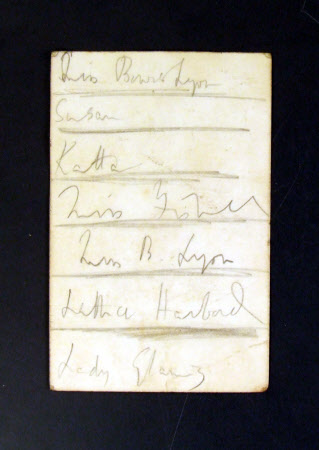 Miss Bowes Lyon
Susan
Katta
Miss Fisher
Miss B. Lyon
Lettice Harbord
Lady Glamis